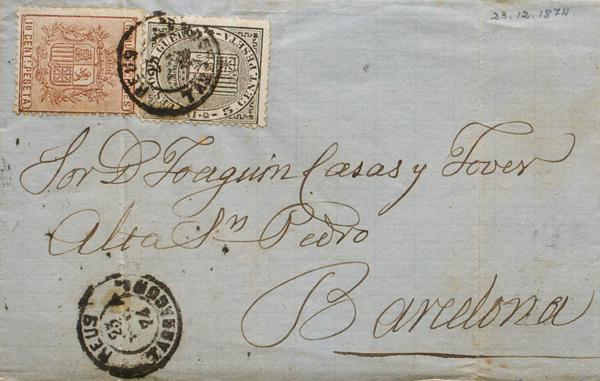 23.12.1874
10 CENT. PESETA
5 CENT PESETA
REUS
Sor D. Joaquin Casas y Tover
Alta Sn Pedro
Barcelona
REUS
23
74